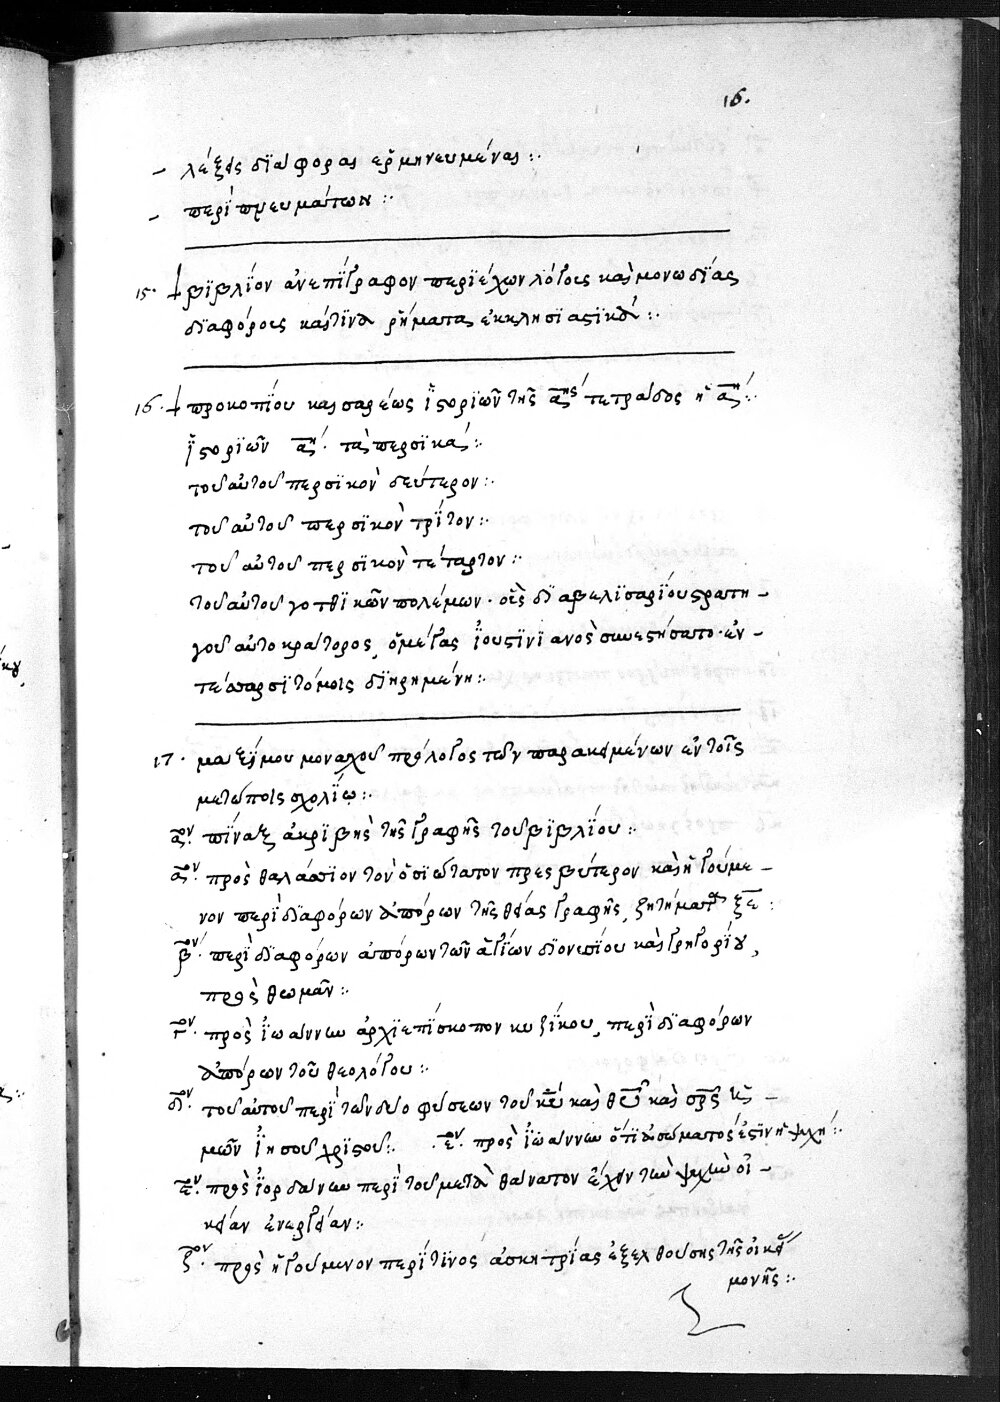 16.
– λέξεις διαφόρας ἑρμηνευμένας :·
– περὶ πνευμάτων :·
15· βιβλίον ἀνεπίγραφον περιέχων λόγοις καὶ μονωδίας
διαφόροις καὶ τινὰ ῥήματα ἐκκλησιαστικὰ :·
16· προκοπίου καισαρέως ἱστοριῶν τῆς α^ης τετράδος ἡ α^η :·
ἱστοριῶν α^η· τὰ περσικά :·
τοῦ αὐτοῦ περσικὸν δεύτερον :·
τοῦ αὐτοῦ περσικὸν τρίτον :·
τοῦ αὐτοῦ περσικὸν τέταρτον :·
τοῦ αὐτοῦ γοτθικῶν πολέμων· οἷς διὰ βελισαρίου στρατη –
γοῦ αὐτοκράτορος, ὁ μέγας ἰουστινιανὸς συνεστήσατο· ἐν –
τέσσαρσι τόμοις διῃρημένη :·
17· μαξίμου μοναχοῦ πρόλογος τῶν παρακειμένων ἐν τοῖς
μετώποις σχολίω :·
α^ον· πίναξ ἀκριβὴς τῆς γραφῆς τοῦ βιβλίου :·
α^ον· πρὸς θαλάσσιον τὸν ὁσιώτατον πρεσβύτερον καὶ ἡγούμε –
νον περὶ διαφόρων ἀπόρων τῆς θείας γραφῆς, ζητήματα ξε :
β^ον· περὶ διαφόρων ἀπόρων τῶν ἁγίων διονυσίου καὶ γρηγορίου,
πρὸς θωμᾶν :·
γ^ον· πρὸς ἰωάννην ἀρχιεπίσκοπον κυζίκου, περὶ διαφόρων
ἀπόρων τοῦ θεολόγου :·
δ^ον· τοῦ αὐτοῦ περὶ τῶν δύο φύσεων τοῦ κυ καὶ θυ καὶ σρς ἡ –
μῶν ἰησοῦ χριστοῦ :· ε^ον· πρὸς ἰωάννην ὅτι ἀσώματος ἐστὶν ἡ ψυχή :·
ε^ον· πρὸς ἰορδάνην περὶ τοῦ μετὰ θάνατον ἔχειν τὴν ψυχὴν οἰ –
κείαν ἐνεργείαν :·
ζ^ον· πρὸς ἡγούμενον περί τινος ἀσκητρίας ἐξελθούσης τῆς οἰκείας
μονῆς :·